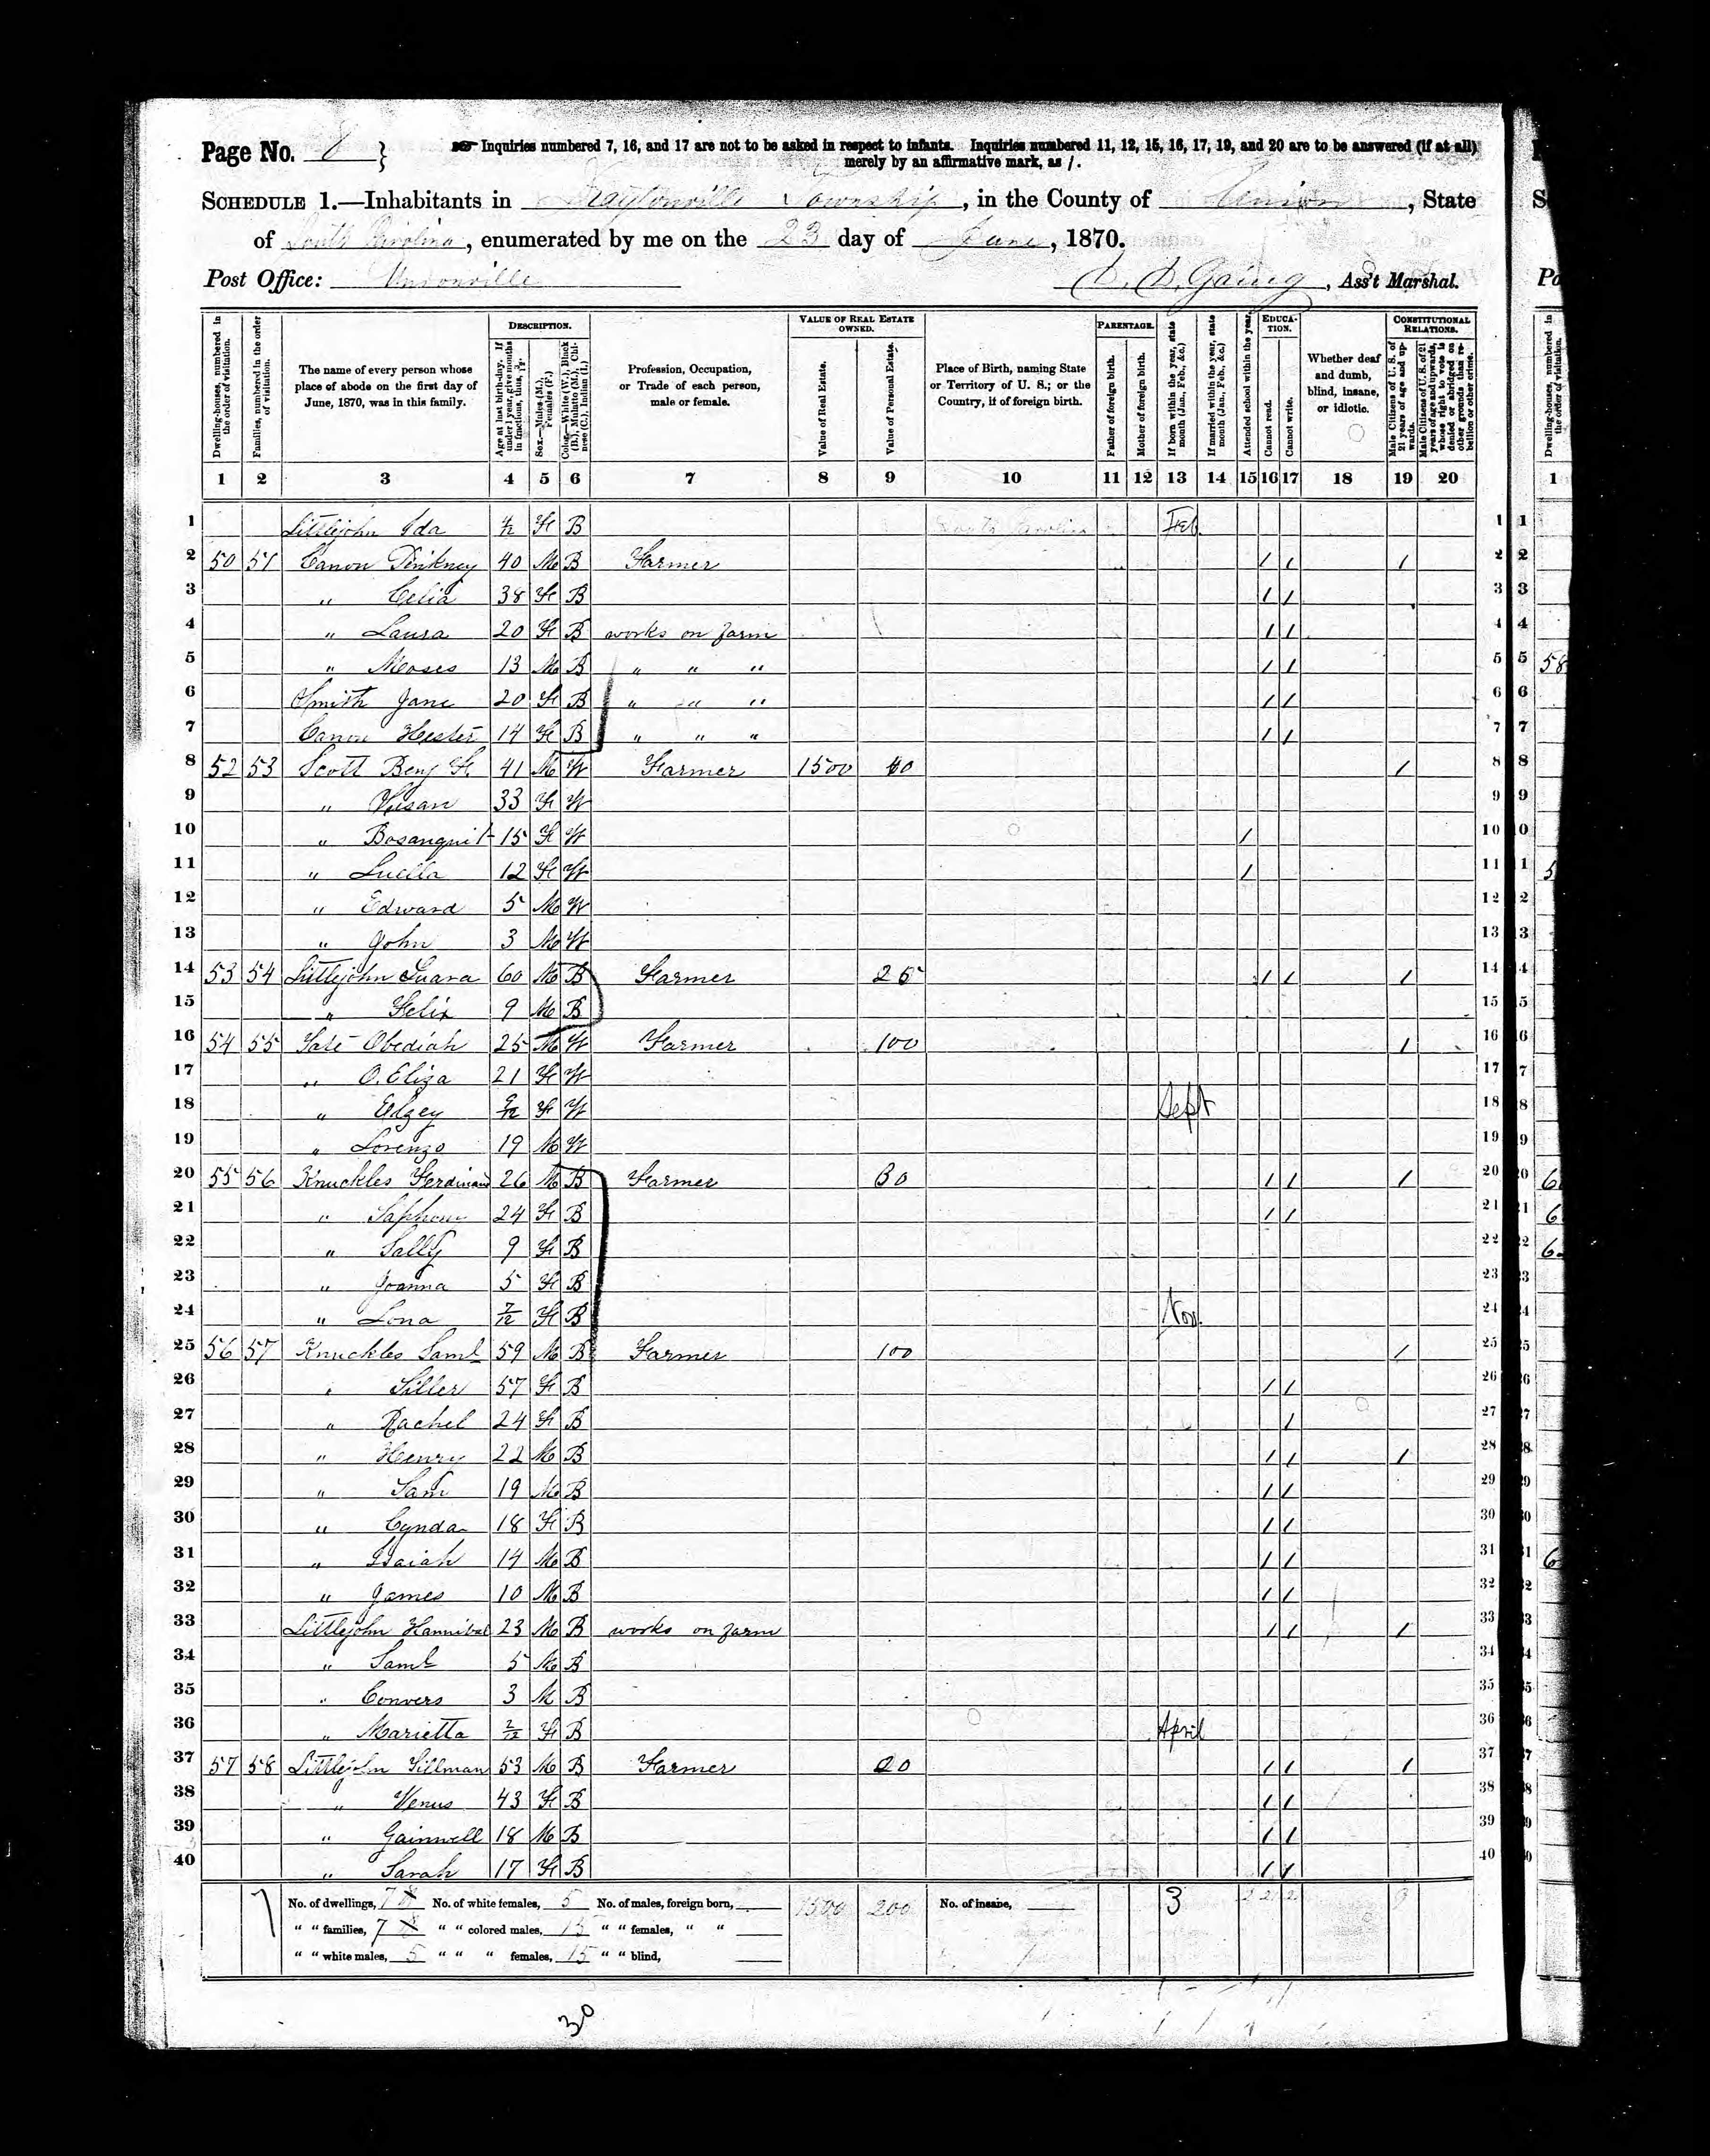 Page No. 8 }
Inquiries numbered 7, 16, and 17 are not to be asked in respect to infants. Inquiries numbered 11, 12, 15, 16, 17, 19, and 20 are to be answered (if at all)
merely by an affirmative mark, as /.
SCHEDULE 1.—Inhabitants in Draytonville Township, in the County of Union, State
of South Carolina, enumerated by me on the 23 day of June, 1870.
Post Office: Unionville
Ass't Marshal.
Dwelling-houses, numbered in the order of visitation.
Families, numbered in the order of visitation.
The name of every person whose place of abode on the first day of June, 1870, was in this family.
DESCRIPTION.
Age at last birth-day. If under 1 year, give months in fractions, thus, 3/12.
Sex.—Males (M.), Females (F.)
Color.—White (W.), Black (B.), Mulatto (M.), Chinese (C.), Indian (I.)
Profession, Occupation, or Trade of each person, male or female.
VALUE OF REAL ESTATE OWNED.
Value of Real Estate.
Value of Personal Estate.
Place of Birth, naming State or Territory of U. S.; or the Country, if of foreign birth.
PARENTAGE.
Father of foreign birth.
Mother of foreign birth.
If born within the year, state month (Jan., Feb., &c.)
If married within the year, state month (Jan., Feb., &c.)
Attended school within the year.
EDUCATION.
Cannot read.
Cannot write.
Whether deaf and dumb, blind, insane, or idiotic.
CONSTITUTIONAL RELATIONS.
Male Citizens of U. S. of 21 years of age and upwards.
Male Citizens of U. S. of 21 years of age and upwards, whose right to vote is denied or abridged on other grounds than rebellion or other crime.
1 2 3 4 5 6 7 8 9 10 11 12 13 14 15 16 17 18 19 20
1 Littlejohn Ida 4/12 F B South Carolina Feb. 1
2 50 51 Canon Pinkney 40 M B Farmer / / / 2
3 " Celia 38 F B / / 3
4 " Laura 20 F B works on farm / / 4
5 " Moses 13 M B " " " / / 5
6 Smith Jane 20 F B " " " / / 6
7 Canon Hester 14 F B " " " / / 7
8 52 53 Scott Benj F. 41 M W Farmer 1500 40 / 8
9 " Susan 33 F W 9
10 " Bosanquit 15 F W / 10
11 " Luella 12 F W / 11
12 " Edward 5 M W 12
13 " John 3 M W 13
14 53 54 Littlejohn 60 M B Farmer 25 / / / 14
15 " Felix 9 M B 15
16 54 55 Tate Obediah 25 M W Farmer 100 / 16
17 " O. Eliza 21 F W 17
18 " Elzey 9/12 F W Sept 18
19 " Lorenzo 19 M W 19
20 55 56 Knuckles Ferdinand 26 M B Farmer 30 / / / 20
21 " 24 F B / / 21
22 " Sally 9 F B 22
23 " Joanna 5 F B 23
24 " Lona 7/12 F B Nov. 24
25 56 57 Knuckles Saml 59 M B Farmer 100 / 25
26 " Siller 57 F B / / 26
27 " Rachel 24 F B / 27
28 " Henry 22 M B / / / 28
29 " Sam 19 M B / / 29
30 " Cynda 18 F B / / 30
31 " Isaiah 14 M B / / 31
32 " James 10 M B / / 32
33 Littlejohn Hannibal 23 M B works on farm / / / 33
34 " Saml 5 M B 34
35 " Convers 3 M B 35
36 " Marietta 2/12 F B April 36
37 57 58 Littlejohn Tillman 53 M B Farmer 20 / / / 37
38 " Venus 43 F B / / 38
39 " Gainwell 18 M B / / 39
40 " Sarah 17 F B / / 40
No. of dwellings, 7 No. of white females, 5 No. of males, foreign born, 1500 200 No. of insane, 3
" " families, 7 " " colored males, 15 " " females, " "
" " white males, 5 " " " females, 15 " " blind,
30